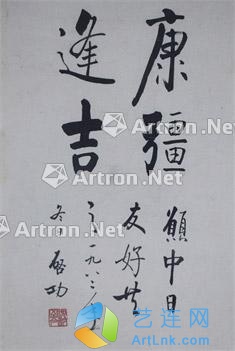 康彊
逢吉
願中日
友好世
一九八
啓功
Artron.Net
Artron.Net
Artron.Net
艺连网
ArtLnk.com